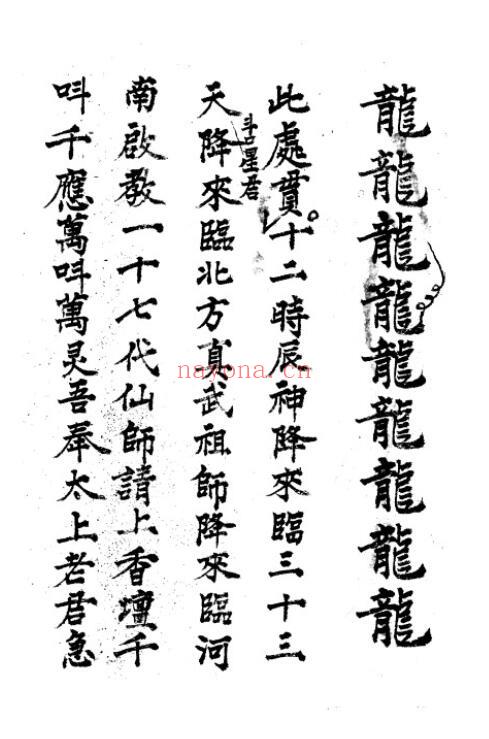 龍龍龍龍龍龍龍龍龍
此處貫十二時辰神降來臨三十三
斗口星君
天降來臨北方真武祖師降來臨河
南啟教一十七代仙師請上香壇千
叫千應萬叫萬灵吾奉太上老君急
nayona.cn